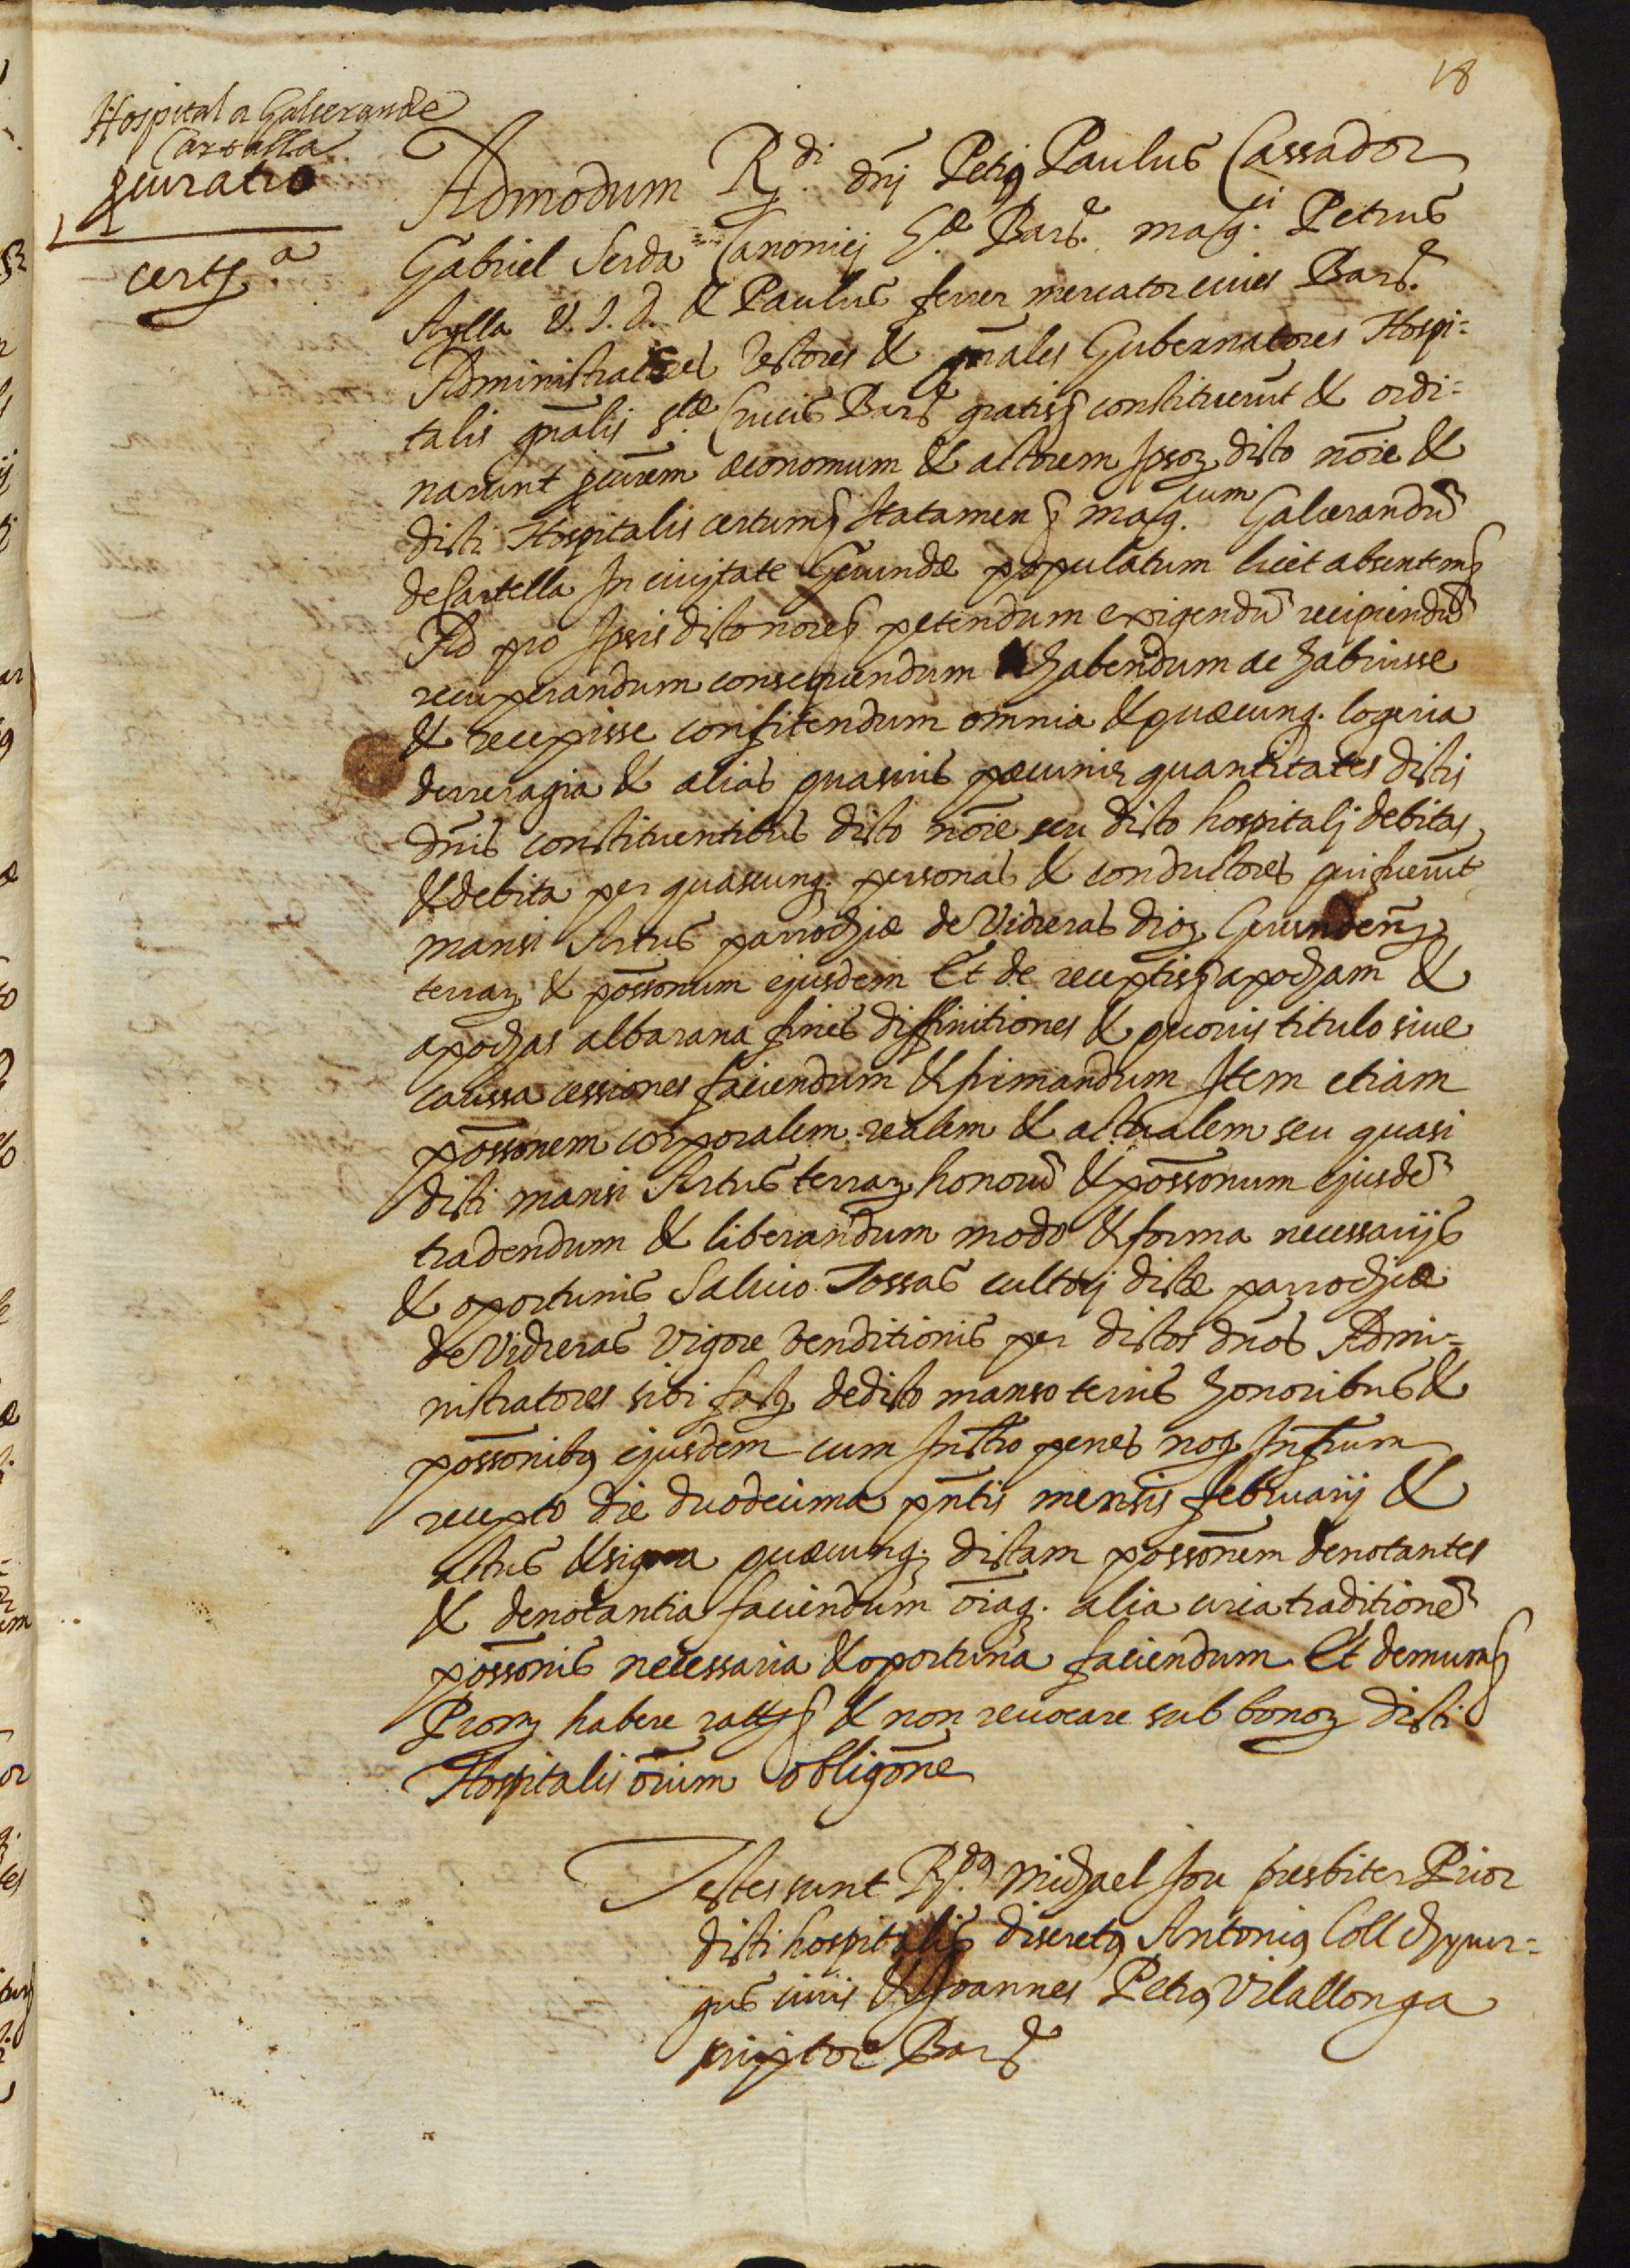 18
Hospital a Galceran de
Cartalla
procuratio
certa
Admodum R.di dnj Petrus Paulus Cassador
Gabriel Serda Canonicj S.e Bare mag.ci Petrus
Aylla V. J. d. & Paulus ferrer mercator cives Bare
Administratores Rectores & gnales Gubernatores Hospi=
talis gnalis S.te Crucis Bare gratis constituerut & ordi=
narunt procurem œconomum & actorem ipsoru dicto noie &
dicti Hospitalis certum statamen mag.cum Galcerandu
de Cartella In civitate Gerundæ populatum licet absentem
Ad pro ipsis dicto noie petendum exigendu recipiendu
recuperandum consequendum habendum ac habuisse
& recepisse confitendum omnia & quæcunq. logeria
derreragia & alias quasvis pecuniæ quantitates dictis
dnis constituentibus dicto noie seu dicto hospitalj debitas
& debita per quascunq. personas & conductores qui fuerut
mansi Artus parrochiæ de Vidreras dioc. Gerunden
terraru & possonum ejusdem Et de receptis apocham &
apochas albarana fines diffinitiones & quovis titulo sive
caussa cessiones faciendum & firmandum Item etiam
possonem corporalem realem & actualem seu quasi
dicti mansi Artus terraru honoru & possonum ejusde
tradendum & liberandum modo & forma necessarijs
& oportunis Salvio Tossas cultorj dictæ parrochiæ
de Vidreras vigore venditionis per dictos dnos Admi=
nistratores sibi facte de dicto manso terris honoribus &
possonibus ejusdem cum Instro penes not. Infrum
recepto die duodecima pntis mensis februarij &
actus & signa quæcunq. dictam possonem denotantes
& denotantia faciendum oiaq. alia circa traditione
possonis necessaria & oportuna faciendum Et demum
Prom habere ratu & non revocare sub bonoru dicti
Hospitalis oium obligone
Testes sunt R.dus Michael Jou presbiter Prior
dicti hospitalis discretus Antonius Coll chyrur=
gus civis & Joannes Petrus Vilallonga
scriptor Bare